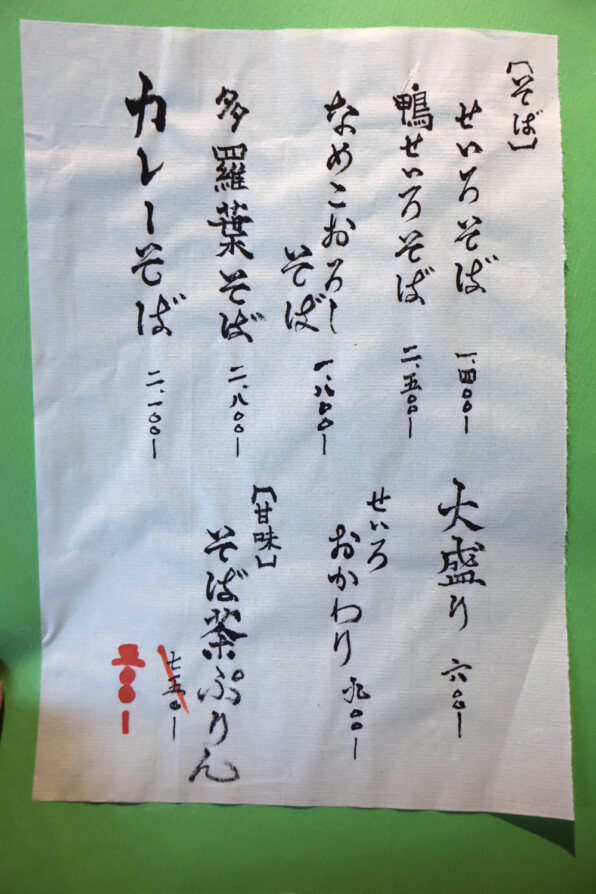 【そば】
せいろそば 一、四〇〇ー
鴨せいろそば 二、五〇〇ー
なめこおろし
そば 一、八〇〇ー
多羅葉そば 二、八〇〇ー
カレーそば 二、一〇〇ー
大盛り 六〇〇ー
せいろ
おかわり 九〇〇ー
【甘味】
そば茶ぷりん
七五〇ー
五〇〇ー